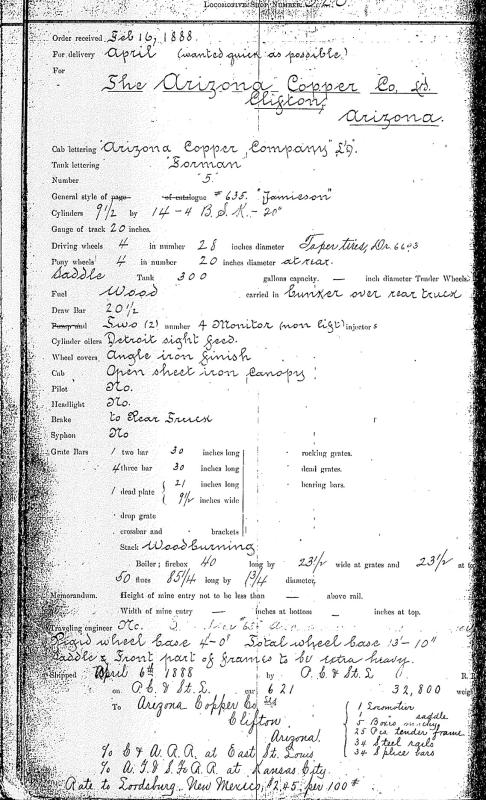 LOCOMOTIVE SHOP NUMBER
Order received Feb 16, 1888.
For delivery April (wanted quick as possible)
For
The Arizona Copper Co, Ld.
Clifton,
Arizona.
Cab lettering "Arizona Copper Company" L'd.
Tank lettering "Forman"
Number "5."
General style of page of catalogue # 635. "Jamieson"
Cylinders 9 1/2 by 14 - 4 B.S.K. - 20"
Gauge of track 20 inches.
Driving wheels 4 in number 28 inches diameter Taper tires, Dr. 6603
Pony wheels 4 in number 20 inches diameter at rear.
Saddle Tank 300 gallons capacity. — inch diameter Tender Wheels.
Fuel Wood carried in bunker over rear truck
Draw Bar 20 1/2
Pump and Two (2) number 4 Monitor (non lift) injectors
Cylinder oilers Detroit sight feed.
Wheel covers Angle iron finish
Cab Open sheet iron canopy
Pilot No.
Headlight No.
Brake to Rear Truck
Syphon No
Grate Bars 1 two bar 30 inches long rocking grates.
4 three bar 30 inches long dead grates.
1 dead plate { 21 inches long bearing bars.
9 1/2 inches wide
drop grate
crossbar and brackets
Stack Woodburning
Boiler; firebox 40 long by 23 1/2 wide at grates and 23 1/2 at
50 flues 85 1/4 long by 1 3/4 diameter,
Memorandum. Height of mine entry not to be less than — above rail.
Width of mine entry — inches at bottom — inches at top.
Traveling engineer No.
Rigid wheel base 4-0" Total wheel base 13'-10"
Saddle & Front part of frames to be extra heavy.
Shipped April 6th 1888 by P.C. & St. L R. R.
on P.C. & St. L. car 621 32,800
To Arizona Copper Co Ltd
Clifton
Arizona!
1 Locomotive
1 " saddle
5 Boxes mchy
25 Pcs tender frame
34 Steel rails
34 Splice bars
To C & A. R.R. at East St. Louis
To A.T. & S. Fe R.R. at Kansas City
Rate to Lordsburg, New Mexico, $2.45, per 100#